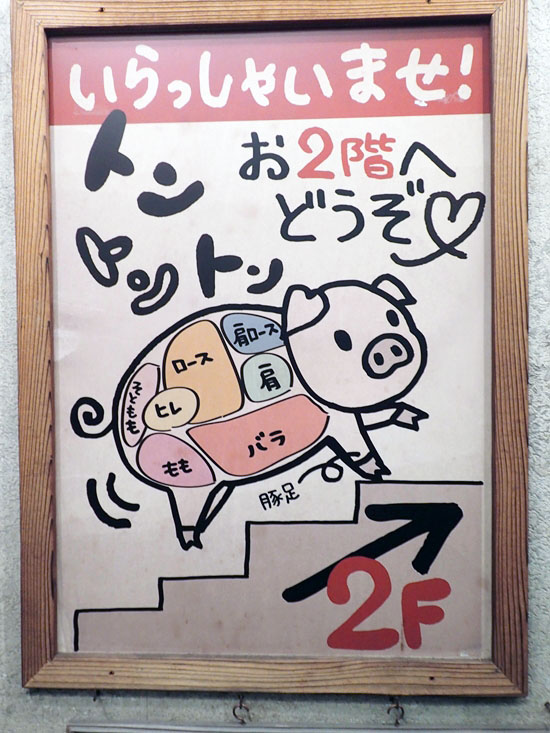 いらっしゃいませ!
お2階へ
どうぞ
トン
トン トン
肩ロース
ロース
肩
そともも
ヒレ
バラ
もも
豚足
2F